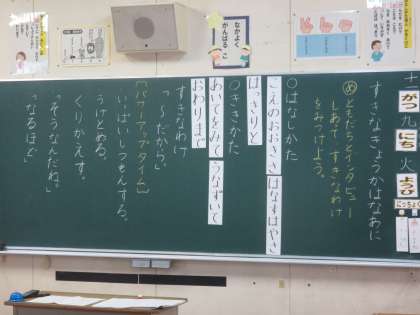 十一がつ九にち火ようび
にっちょく
すきなきょうかはなあに
めともだちとインタビュー
しあってすきなわけ
をみつけよう。
○はなしかた
こえのおおきさ はなすはやさ
はっきりと
○ききかた
あいてをみて うなずいて
おわりまで
すきなわけ
「〜だから」
[パワーアップタイム]
いっぱいしつもんする。
うけとめる。
くりかえす。
「そうなんだね。」
「なるほど」
なかよく
がんばるこ